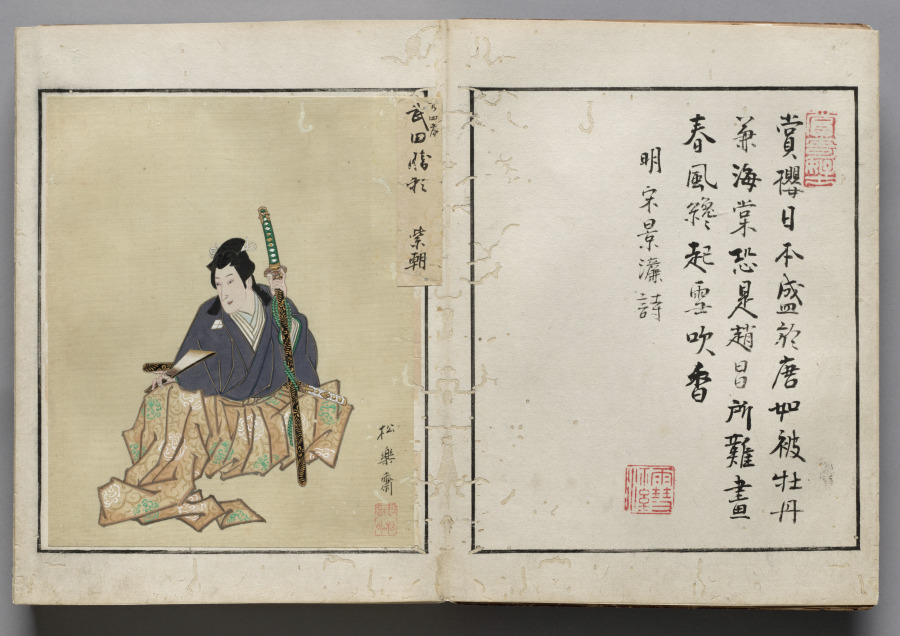 賞櫻日本盛於唐如被牡丹
兼海棠恐是趙昌所難畫
春風纔起雪吹香
明 宋景濂詩
武田勝頼 紫朝
松樂齋